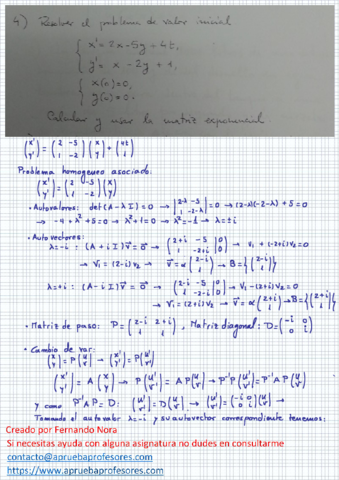 4) Resolver el problema de valor inicial
{ x' = 2x - 5y + 4t,
y' = x - 2y + 1,
x(0) = 0,
y(0) = 0.
Calcular y usar la matriz exponencial.
(x' y') = (2 -5 1 -2)(x y) + (4t 1)
Problema homogeneo asociado:
(x' y') = (2 -5 1 -2)(x y)
• Autovalores: det(A - λI) = 0 → |2-λ -5 1 -2-λ| = 0 → (2-λ)(-2-λ) + 5 = 0
→ -4 + λ² + 5 = 0 → λ² + 1 = 0 → λ² = -1 → λ = ±i
• Autovectores:
λ = -i : (A + iI) v⃗ = 0⃗ → (2+i -5 | 0 1 -2+i | 0) → v₁ + (-2+i)v₂ = 0
→ v₁ = (2-i)v₂ → v⃗ = α(2-i 1) → B = {(2-i 1)}
λ = +i : (A - iI) v⃗ = 0⃗ → (2-i -5 | 0 1 -2-i | 0) → v₁ - (2+i)v₂ = 0
→ v₁ = (2+i)v₂ → v⃗ = α(2+i 1) → B = {(2+i 1)}
• Matriz de paso: P = (2-i 2+i 1 1), Matriz diagonal: D = (-i 0 0 i)
• Cambio de var:
(x y) = P(u v) → (x' y') = P(u' v')
(x' y') = A(x y) → P(u' v') = AP(u v) → P⁻¹P(u' v') = P⁻¹AP(u v)
y como P⁻¹AP = D: (u' v') = D(u v) → (u' v') = (-i 0 0 i)(u v) →
Tomando el autovalor λ = -i y su autovector correspondiente tenemos:
Creado por Fernando Nora
Si necesitas ayuda con alguna asignatura no dudes en consultarme
contacto@apruebaprofesores.com
https://www.apruebaprofesores.com